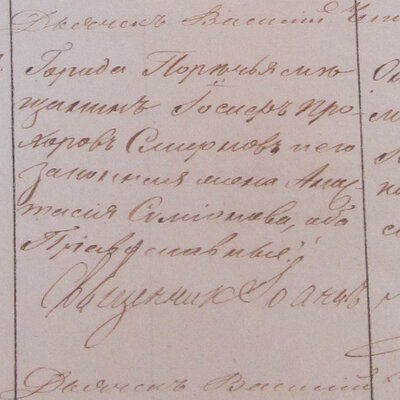 Дьячекъ Василий
Города Порѣчья мѣ
щанинъ Госифъ Про
хоровъ Смирновъ и его
законная жена Анас
тасия Симионова, оба
Православные.
Священникъ Іоаннъ
Дьячекъ Василий